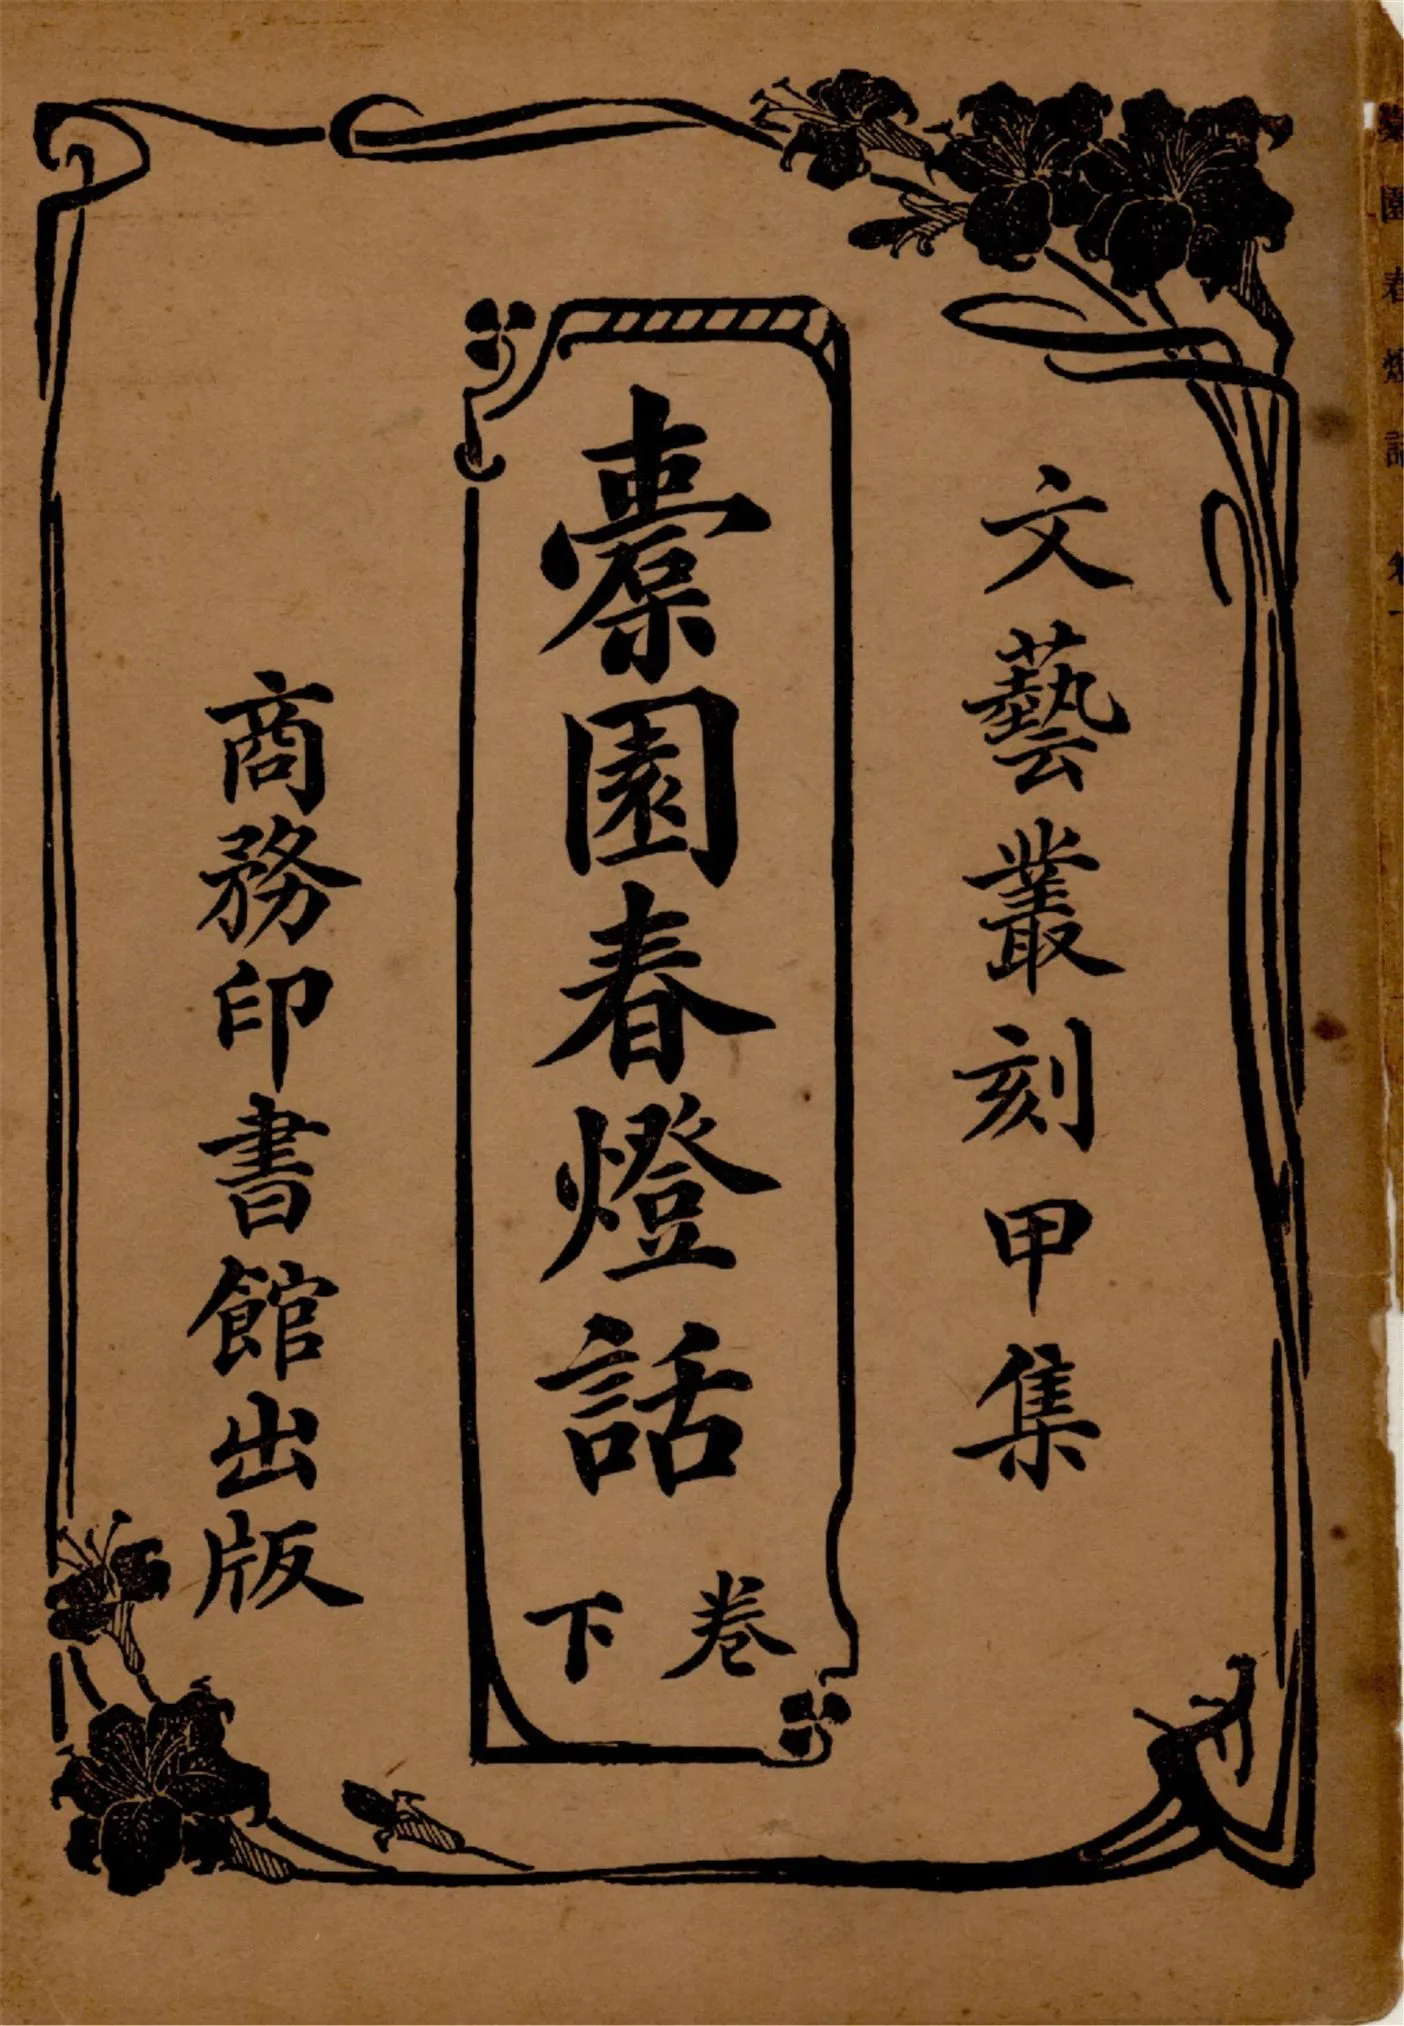 文藝叢刻甲集
橐園春燈話
卷下
商務印書館出版
園春燈話 卷